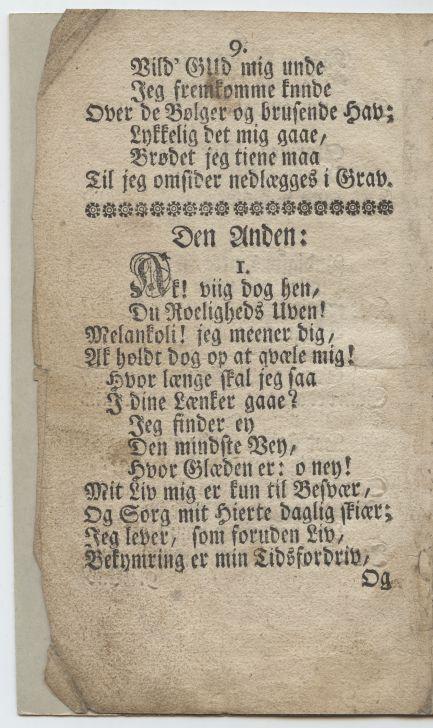 9.
Vild' GUd mig unde
Jeg fremkomme knnde
Over de Bølger og brusende Hav;
Lykkelig det mig gaae,
Brødet jeg tiene maa
Til jeg omsider nedlægges i Grav.
Den Anden:
1.
Ak! viig dog hen,
Du Roeligheds Uven!
Melankoli! jeg meener dig,
Ak holdt dog op at qvæle mig!
Hvor længe skal jeg saa
I dine Lænker gaae?
Jeg finder ey
Den mindste Vey,
Hvor Glæden er: o ney!
Mit Liv mig er kun til Besvær,
Og Sorg mit Hierte daglig skiær;
Jeg lever, som foruden Liv,
Bekymring er min Tidsfordriv,
Og